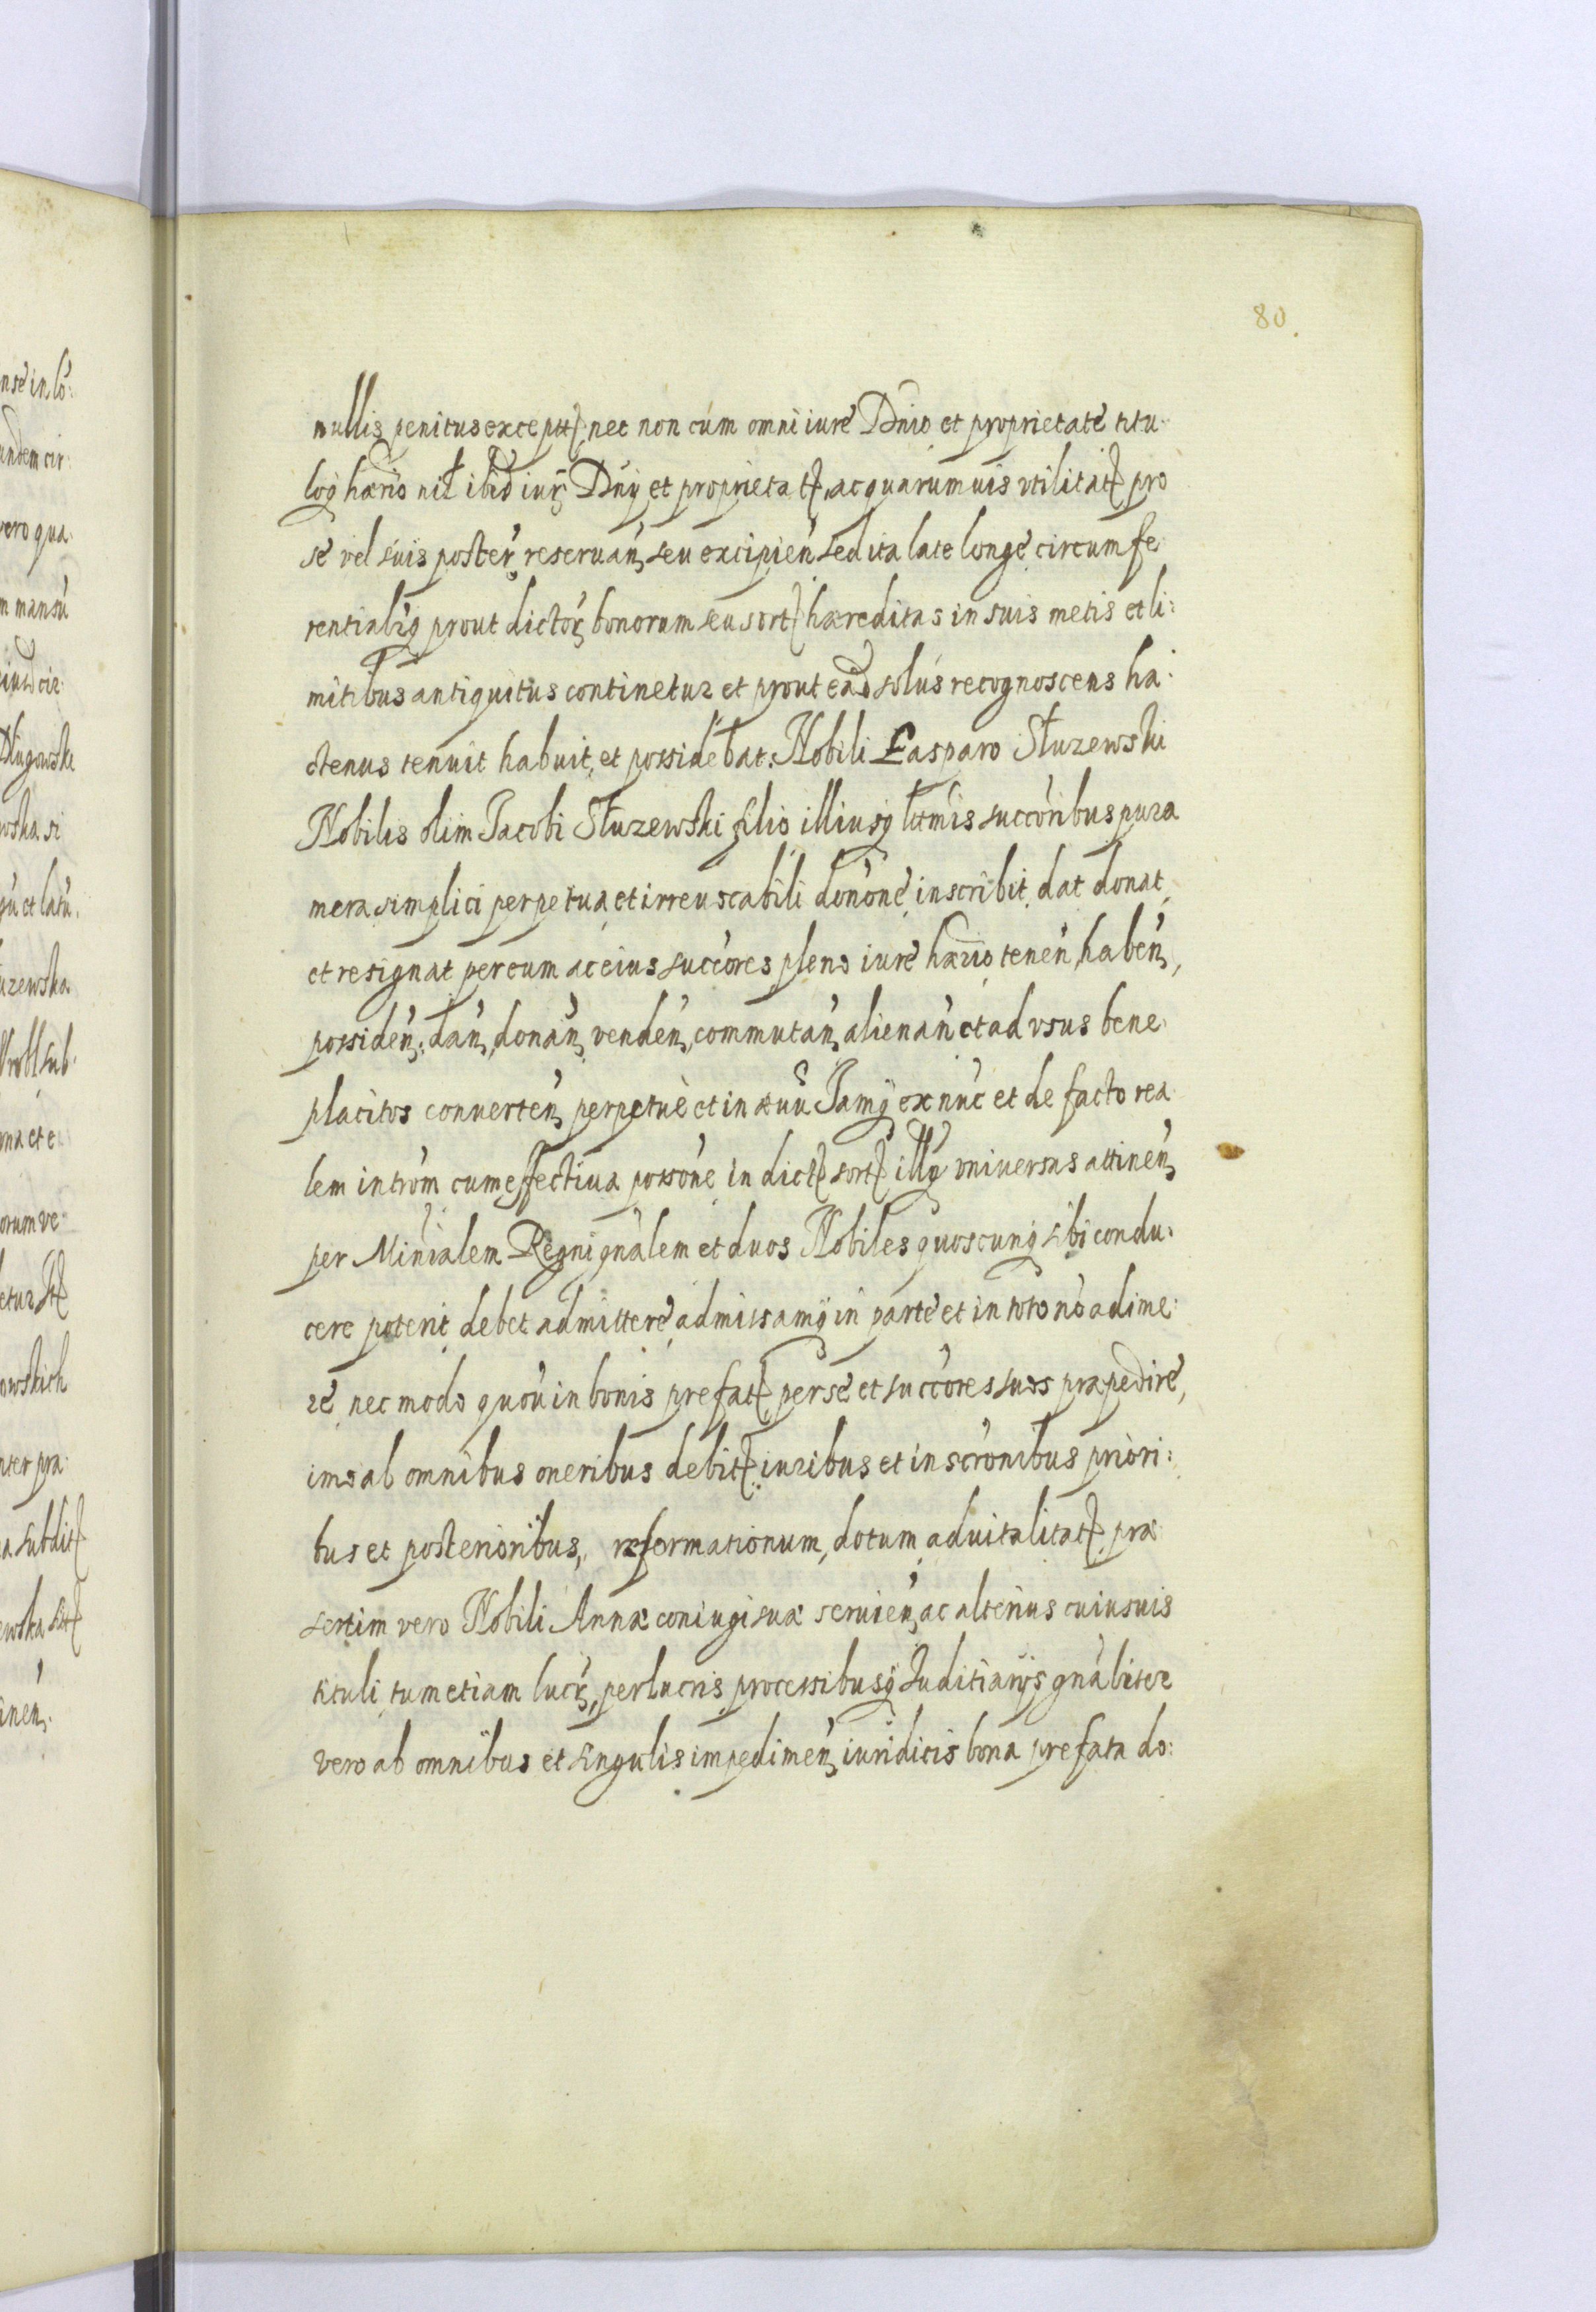 80.
nullis penitus exceptt, nec non cúm omni iuré Dnio et proprietaté titu
loq hærio nil ibid iur Dnÿ et proprietat, ac quarumuis vtilitat pro
sé vel súis poster reseruan, seu excipien sed ita late longé circumfe
rentialiq prout dictor bonorum seu sort hæreditas in suis metis et li:
mitibus antiquitus continetur et prout ead solús recognoscens ha:
ctenus tenuit habuit, et possidebat. Nobili Casparo Słuzewski
Nobilis olim Jacobi Słuzewski filio illiusq lttmis succoribus pura
mera simplici perpetua et irreuocabili donone inscribit dat donat
et resignat per eum ac eius succores pleno iuré hærio tenen, haben,
possiden, dan, donan, venden, commutan, alienan et ad vsus bene
placitos conuerten, perpetuè et in æuu Jamq ex núc et de facto rea
lem introm cum effectiua possone in dict sort illq vniuersas attinen
per Minialem Regni gnalem et duos Nobiles quoscunq sibi condu:
cere poterit debet admitteré admissamq in parté et in toto nó adime:
ré nec modo quouis in bonis prefat per sé et succores suos præpediré,
imo ab omnibus oneribus debit iuribus et inscronibus priori:
bus et posterioribus, reformationum, dotum aduitalitat præ
sertim vero Nobili Annæ coniugi suæ seruien, ac alterius cuiusuis
tituli tum etiam lucr, perlucris processibusq Juditiarÿs gnaliter
vero ab omnibus et singulis impedimen iuridicis bona prefata do: